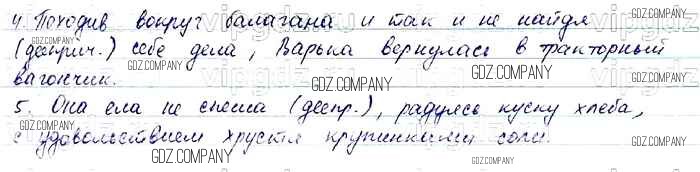 4. Походив вокруг балагана и так и не найдя
(дееприч.) себе дела, Варька вернулась в тракторный
вагончик.
5. Она ела не спеша (деепр.), радуясь куску хлеба,
с удовольствием хрустя крупинками соли.
GDZ.COMPANY
vipgdz